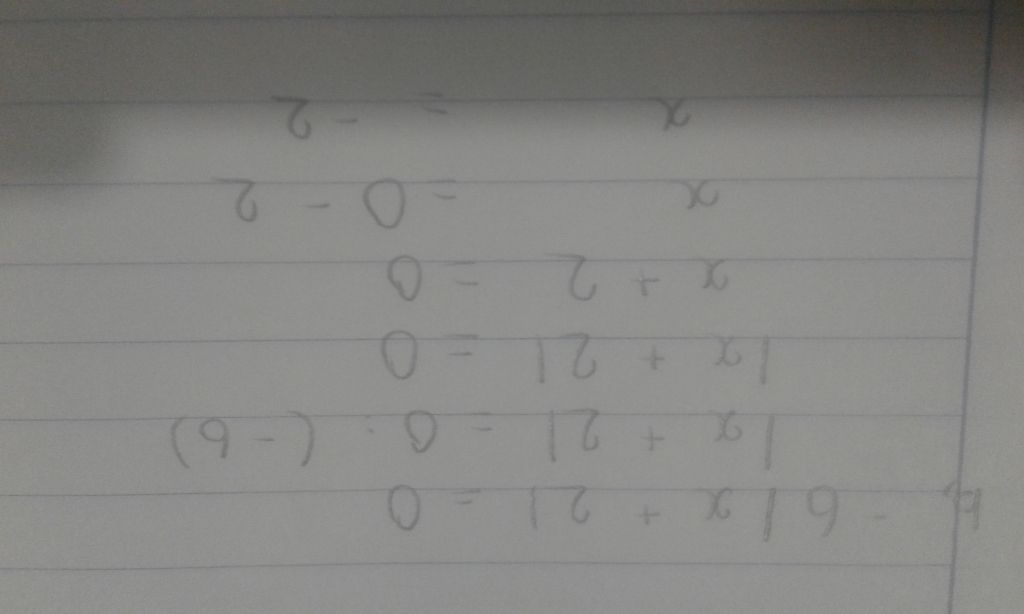 h, -6|x + 2| = 0
|x + 2| = 0 : (-6)
|x + 2| = 0
x + 2 = 0
x = 0 - 2
x = -2